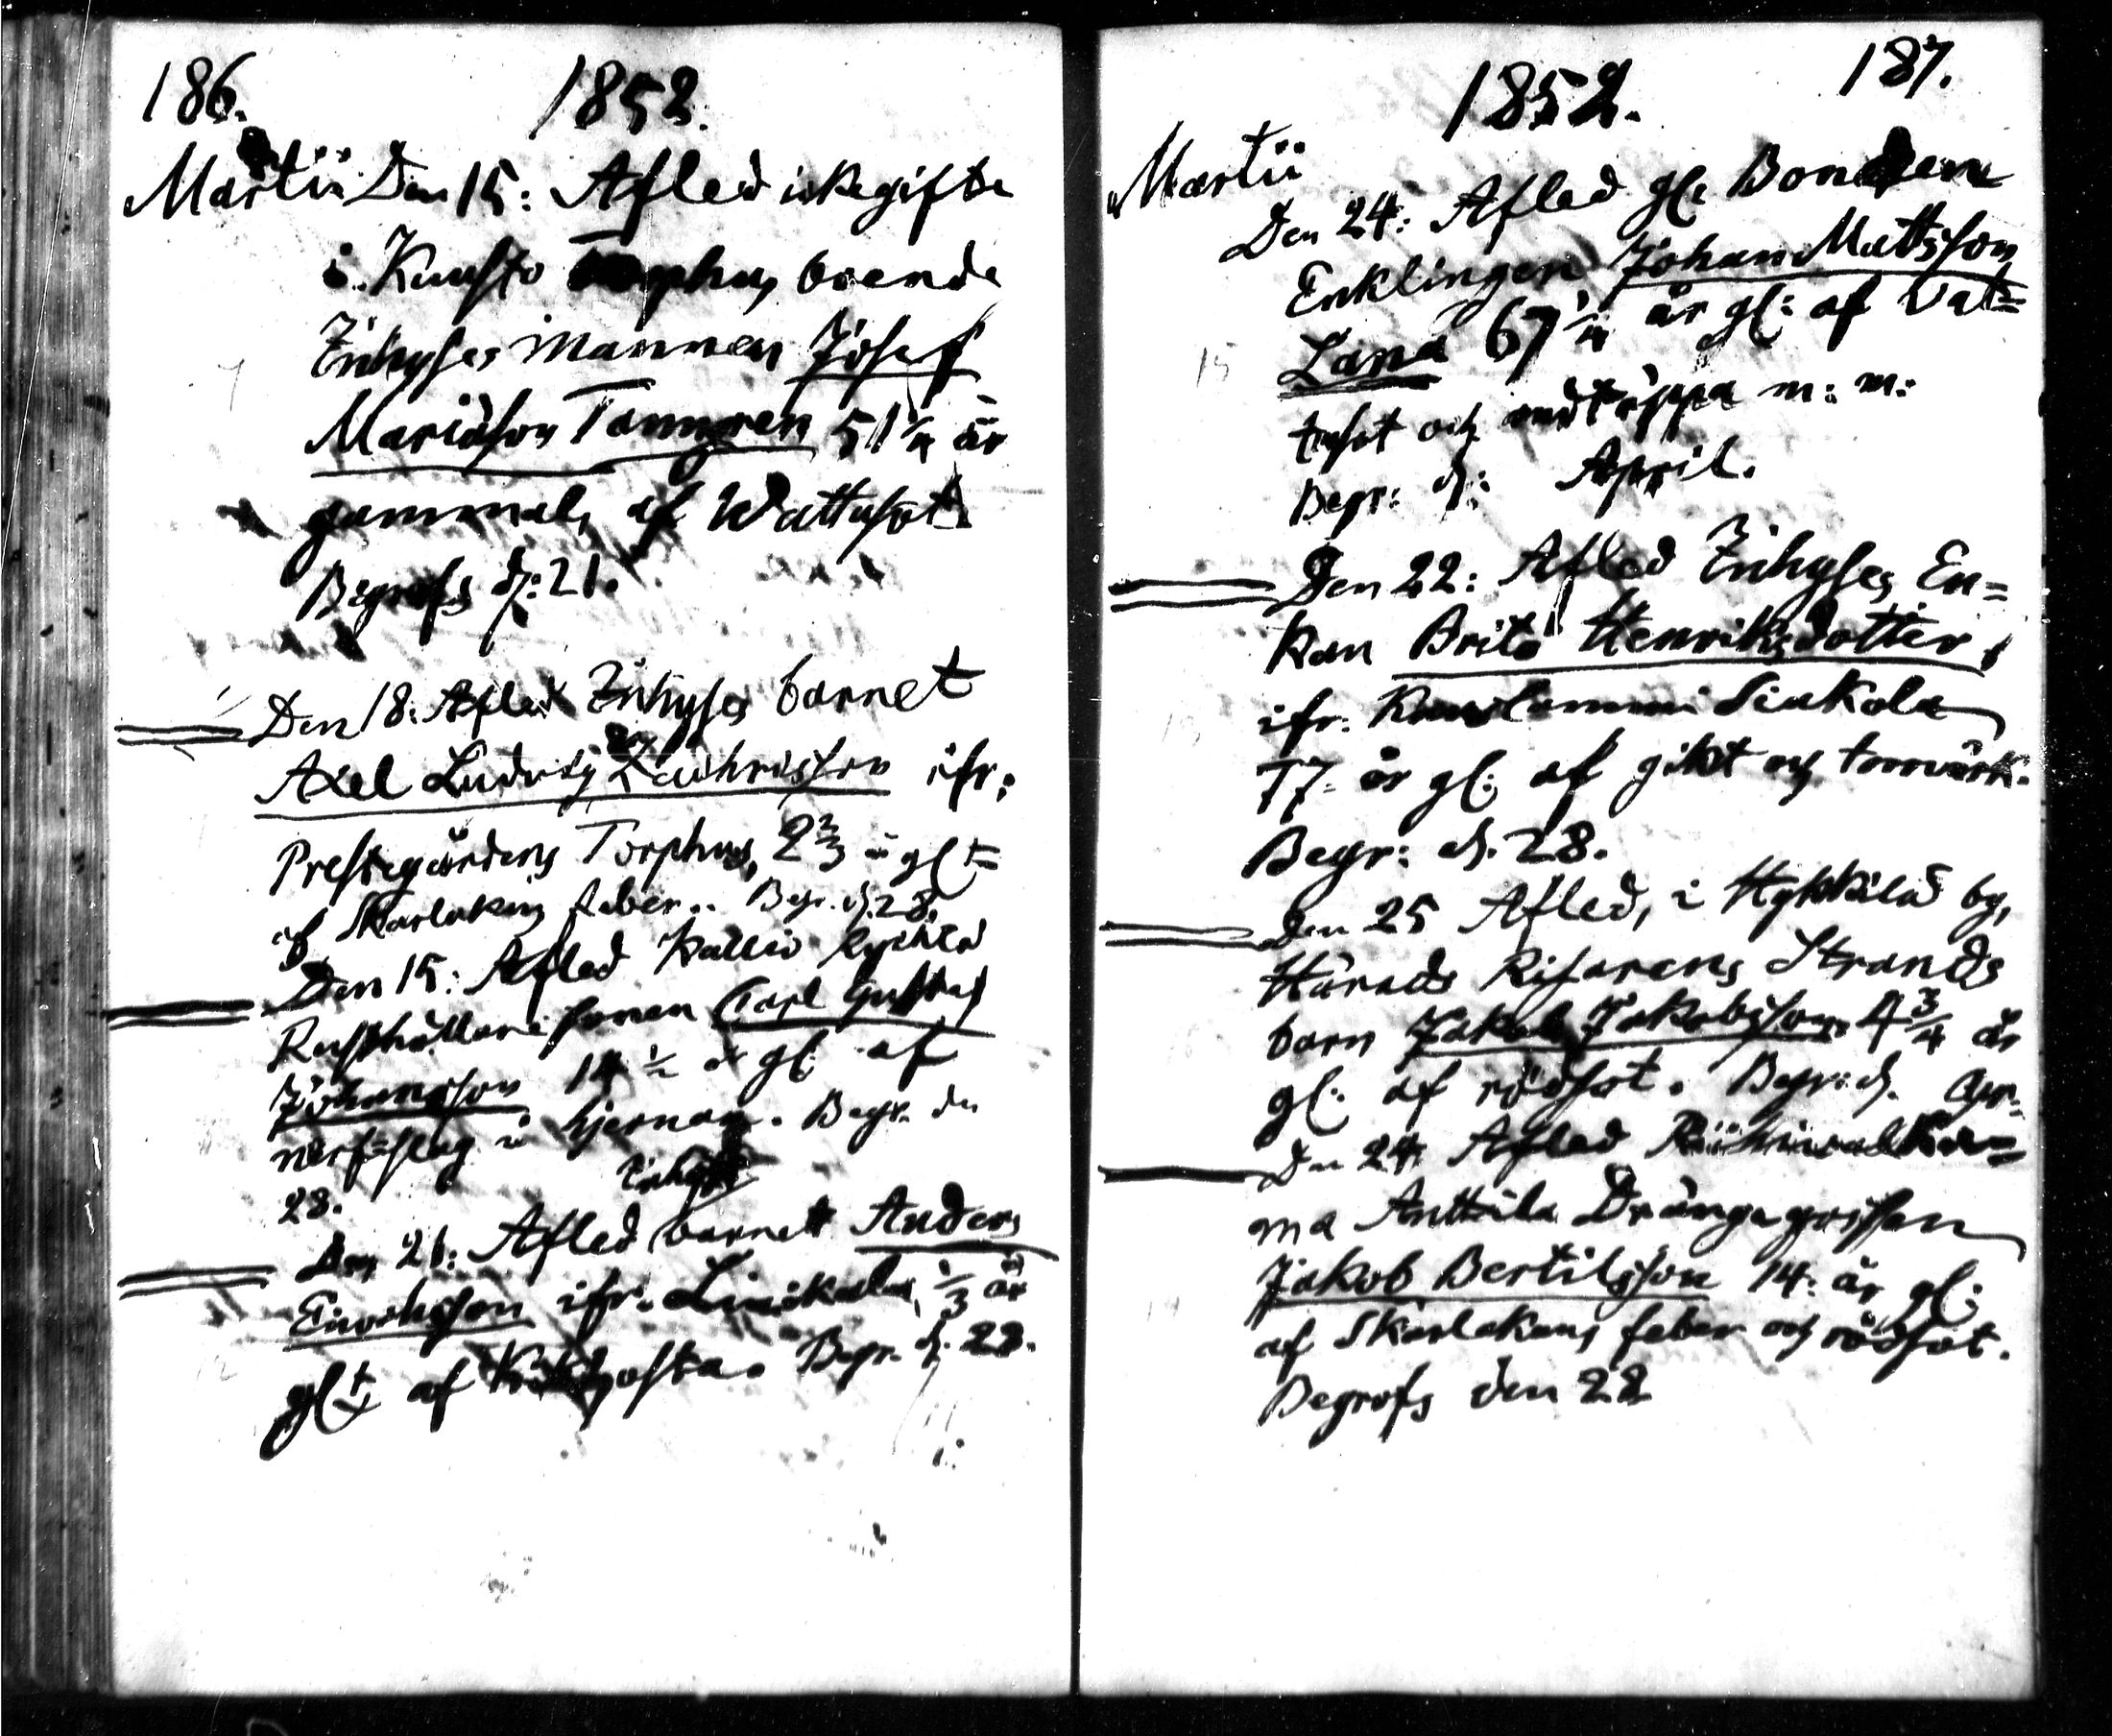 186. 1852.
Martii Den 15: Afled ickegifte
i Kausto boende
Inhyses Mannen Josef
Mariasson Tanngren 51 1/4 år
gammal, af Wattusot
Begrofs d: 21.
Den 18: Afled Inhyses barnet
Axel Ludvig ifr:
Prestegårdens Torphus, 2 2/3 å gl t
af Skarlakans feber.. Begr. d. 28.
Den 15: Afled Kallio
Rusthållare sonen Carl Gustaf
Johansson 14 1/2 år gl: af
nerfslag i hjernan. Begr. den
28.
Inhyses
Den 21: Afled barnet Anders
ifr. 1/3 år
gl t af Kikhosta. Begr. d. 28.
187.
1852.
Martii
Den 24: Afled gl: Bonden
Enklingen Johan Mattsson,
Lana 67 1/4 år gl: af Vat=
tusot och andtäppa m: m:
Begr: d: April.
Den 22: Afled Inhyses En=
kan Brita Henriksdotter,
ifr. Siukola
77 år gl: af gikt och torrvärk.
Begr: d. 28.
Den 25 Afled, i Hykkilä by,
Härads Risarens Strands
barn Jakob Jakobsson 4 3/4 år
gl: af rödsot. Begr: d. Apr.
Den 24 Afled
ma Anttila Drängagossen
Jakob Bertilsson 14: år gl:
af Skarlakans feber och rödsot.
Begrofs den 28